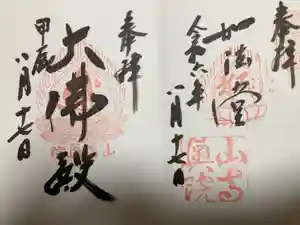 奉拝
如法堂
令和六年
八月十七日
山寺
奥院
奉拝
大佛殿
甲辰
八月十七日